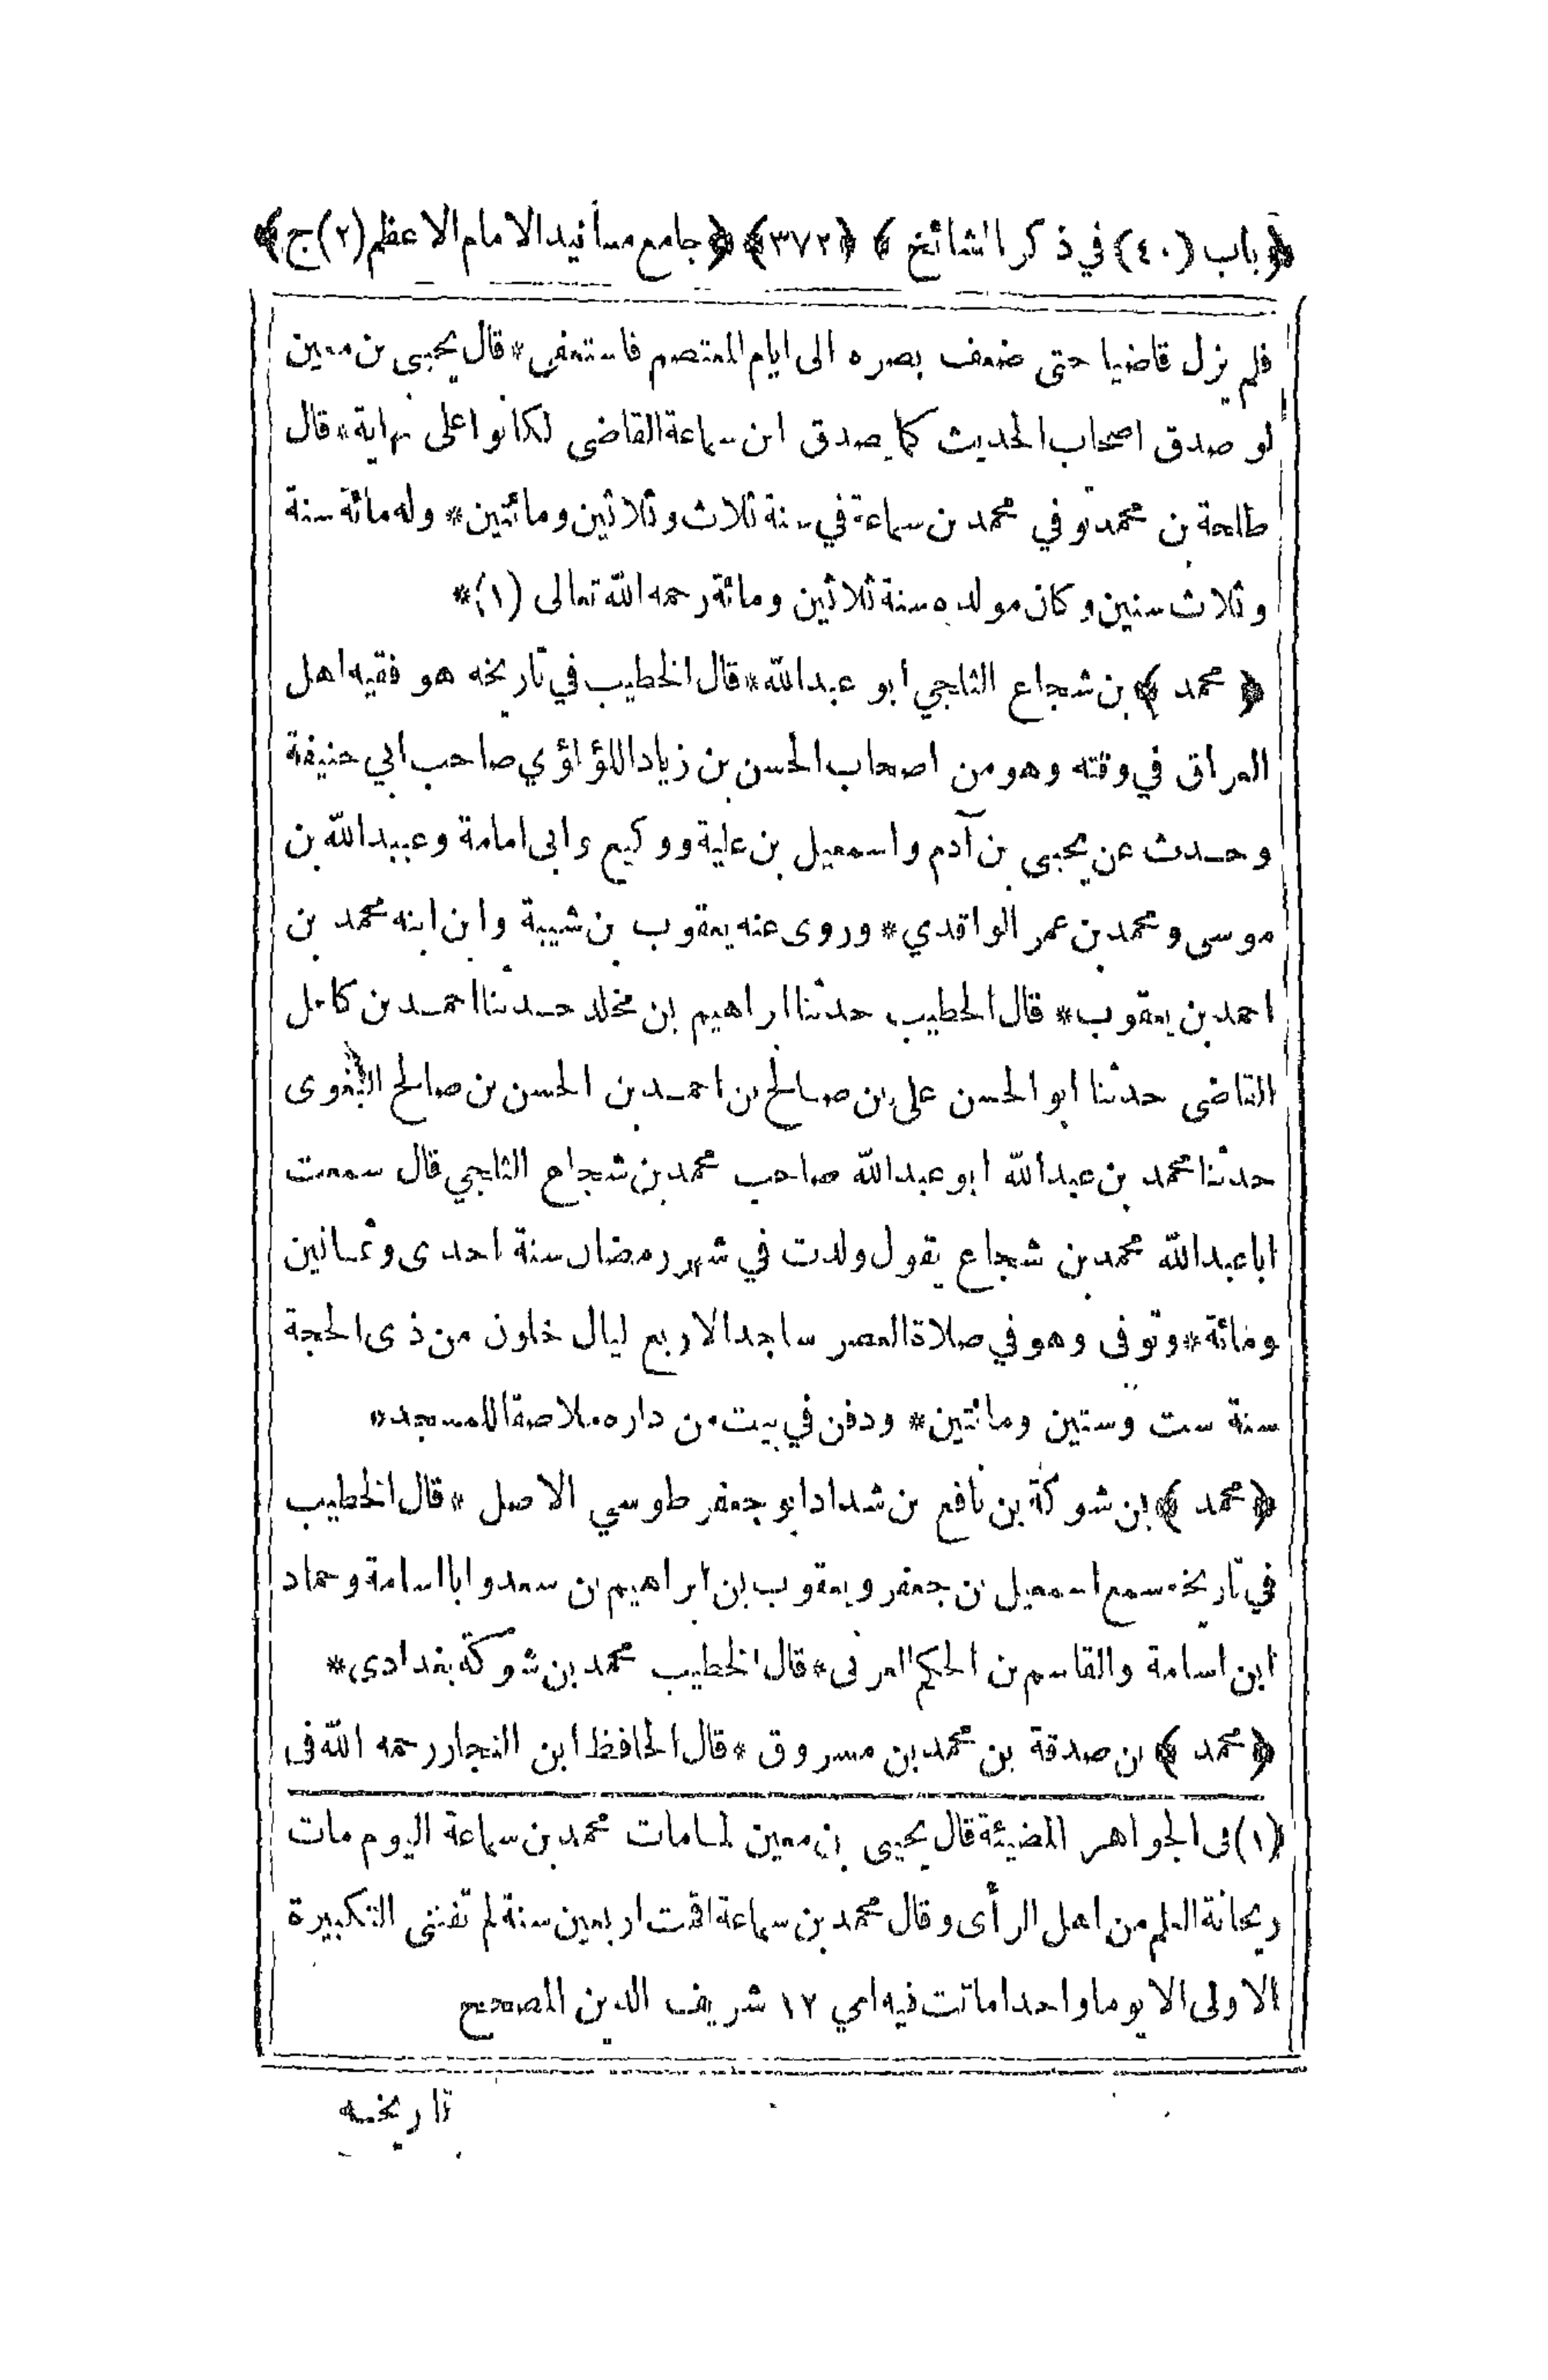 ﴿باب (٤٠) في ذكر المشائخ﴾ ﴿٣٧٢﴾ ﴿جامع مسانيد الامام الاعظم (٢) ج﴾
فلم يزل قاضيا حتى ضعف بصره الى ايام المعتصم فاستعفى * قال يحيى بن معين
لو صدق اصحاب الحديث كما يصدق ابن سماعة القاضى لكانوا على نهاية * قال
طلحة بن محمد توفي محمد بن سماعة في سنة ثلاث وثلاثين ومائتين * وله مائة سنة
وثلاث سنين وكان مولده سنة ثلاثين ومائة رحمه الله تعالى (١) *
﴿محمد﴾ بن شجاع الثلجي ابو عبد الله * قال الخطيب في تاريخه هو فقيه اهل
العراق في وقته وهو من اصحاب الحسن بن زياد اللؤلؤي صاحب ابي حنيفة
وحدث عن يحيى بن آدم واسمعيل بن علية ووكيع وابى امامة وعبيد الله بن
موسى ومحمد بن عمر الواقدي * وروى عنه يعقوب بن شيبة وابن ابنه محمد بن
احمد بن يعقوب * قال الخطيب حدثنا ابراهيم بن مخلد حدثنا احمد بن كامل
القاضى حدثنا ابو الحسن على بن صالح بن احمد بن الحسن بن صالح البغوى
حدثنا محمد بن عبد الله ابو عبد الله صاحب محمد بن شجاع الثلجي قال سمعت
ابا عبد الله محمد بن شجاع يقول ولدت في شهر رمضان سنة احدى وثمانين
ومائة * وتوفى وهو في صلاة العصر ساجدا لاربع ليال خلون من ذى الحجة
سنة ست وستين ومائتين * ودفن في بيت من داره ملاصقا للمسجد *
﴿محمد﴾ بن شوكة بن نافع بن شداد ابو جعفر طوسي الاصل * قال الخطيب
في تاريخه سمع اسمعيل بن جعفر ويعقوب بن ابراهيم بن سعد وابا اسامة وحماد
ابن اسامة والقاسم بن الحكم العرنى * قال الخطيب محمد بن شوكة بغدادى *
﴿محمد﴾ بن صدقة بن محمد بن مسروق * قال الحافظ ابن النجار رحمه الله فى
(١) فى الجواهر المضيئة قال يحيى بن معين لما مات محمد بن سماعة اليوم مات
ريحانة العلم من اهل الرأى وقال محمد بن سماعة اقمت اربعين سنة لم تفتنى التكبيرة
الاولى الا يوما واحدا ماتت فيه امي ١٢ شريف الدين المصحح
تاريخه